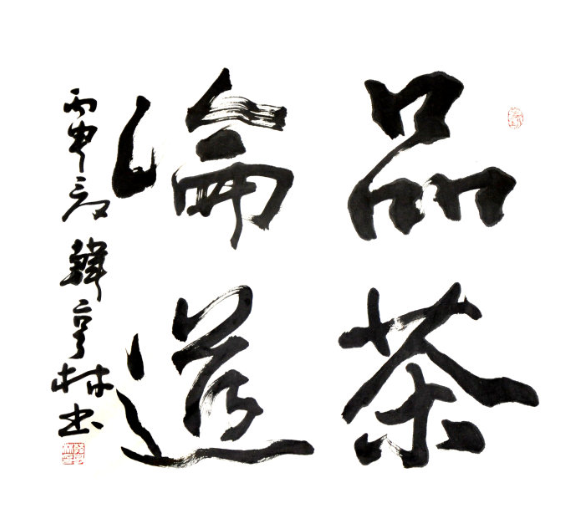 品茶
論道
丙申夏 韓亨林书